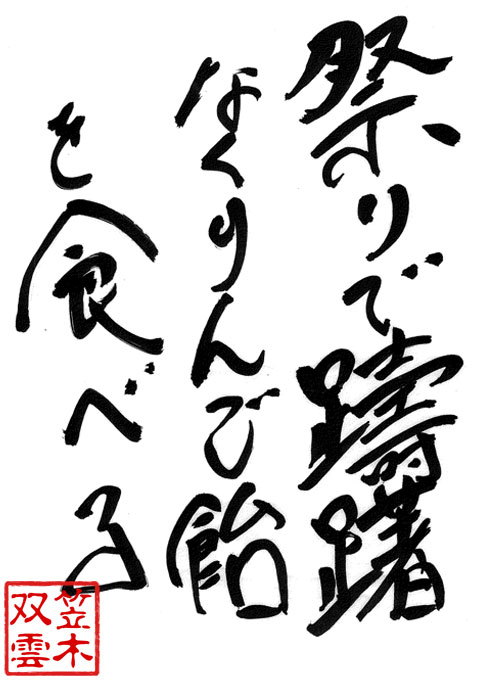 祭りで躊躇
なくりんご飴
を食べる
笠木
双雲